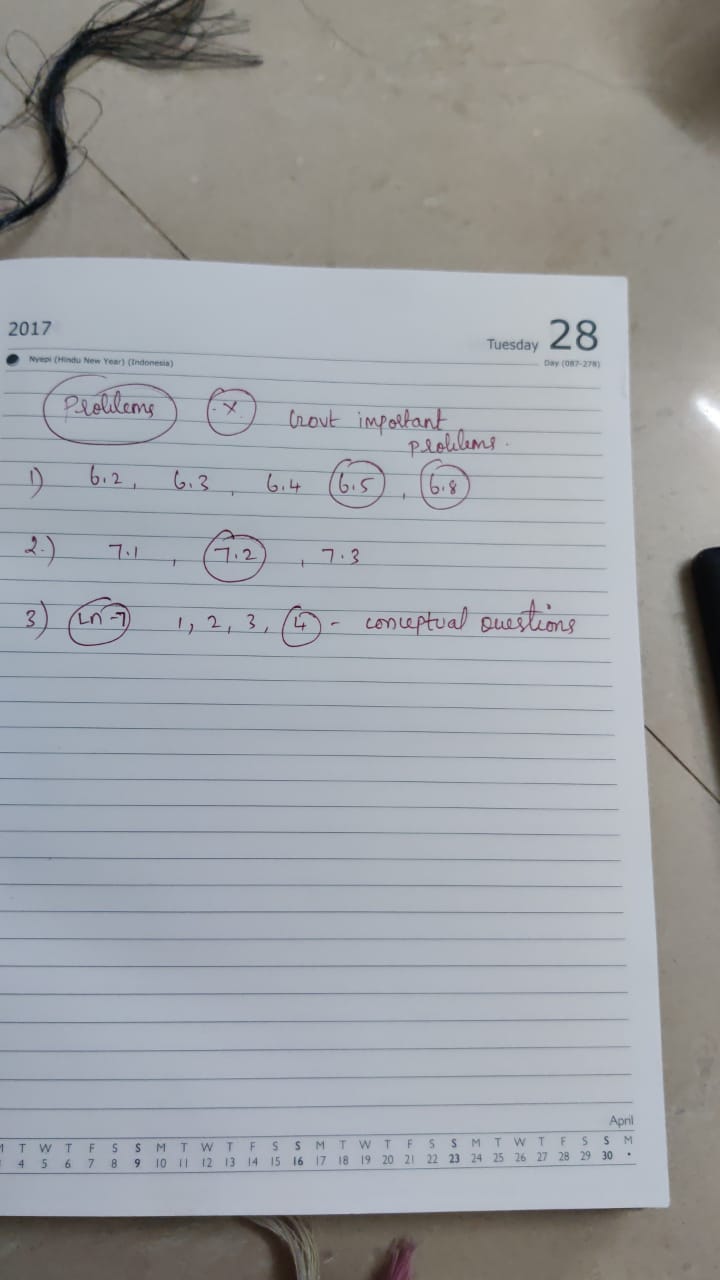 2017
Tuesday 28
Nyepi (Hindu New Year) (Indonesia)
Day (087-278)
Problems x important
problems.
1) 6.2, 6.3, 6.4 6.5, 6.8
2.) 7.1, 7.2, 7.3
3) Ln-7 1, 2, 3, 4 - conceptual questions
April
T W T F S S M T W T F S S M T W T F S S M T W T F S S M
4 5 6 7 8 9 10 11 12 13 14 15 16 17 18 19 20 21 22 23 24 25 26 27 28 29 30